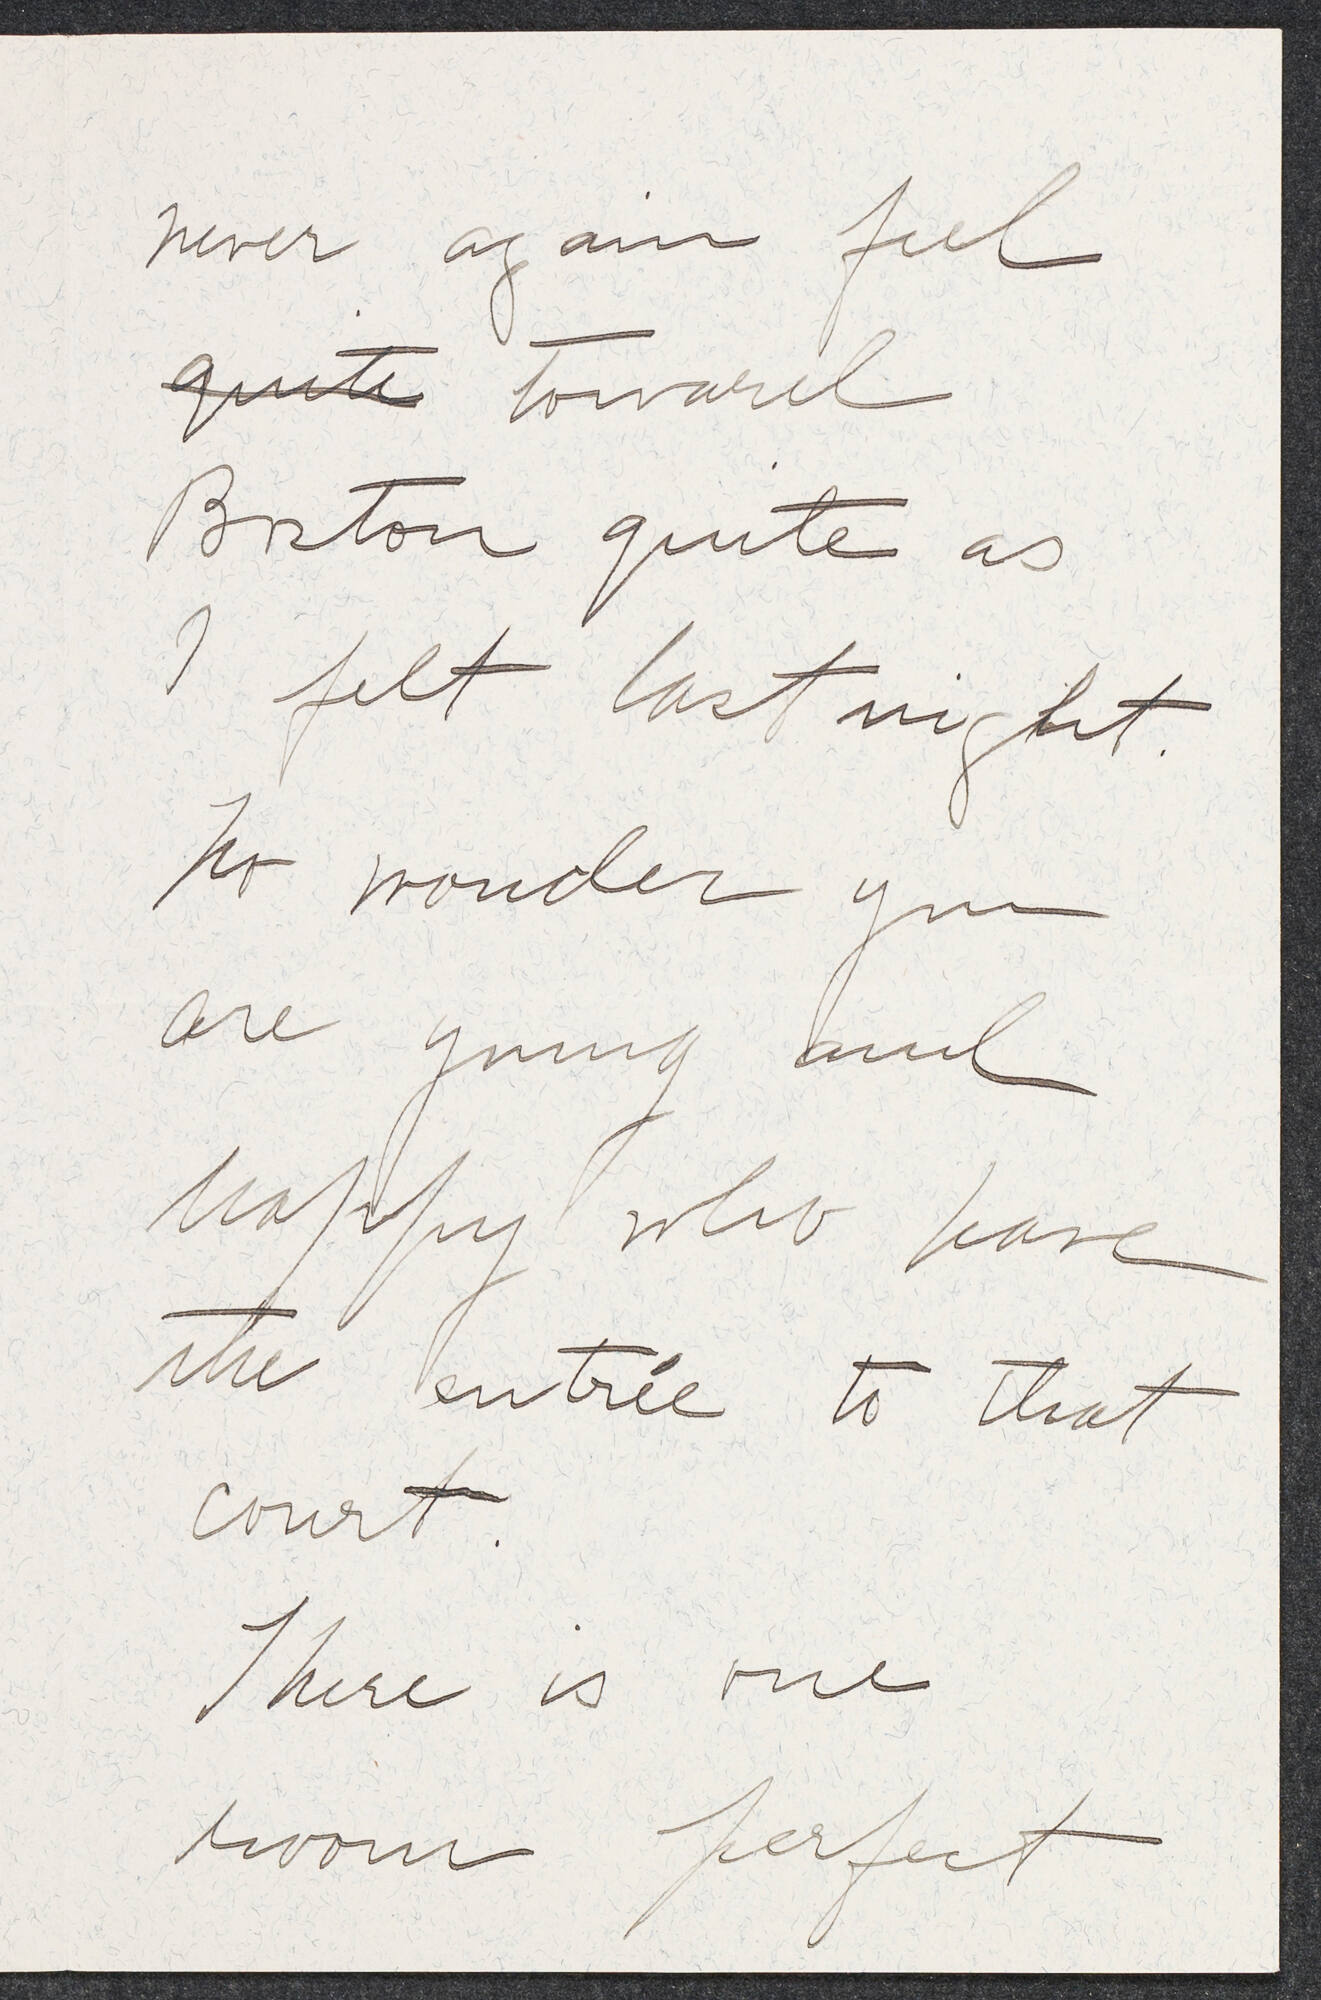 never again feel
quite toward
Boston quite as
I felt last night.
No wonder you
are young and
happy who have
the entrée to that
court.
There is one
room perfect